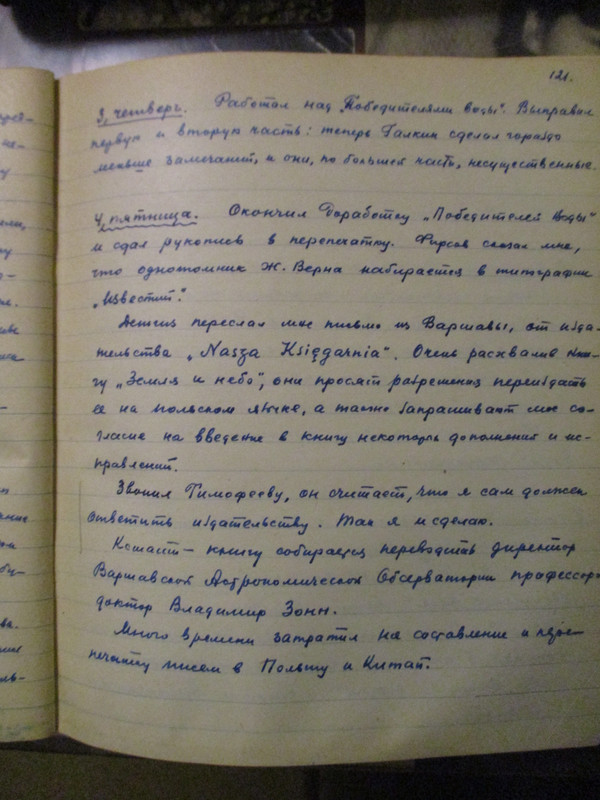 121.
3, четверг. Работал над „Победителями воды“. Выправил
первую и вторую часть: теперь Галкин сделал гораздо
меньше замечаний, и они, по большей часть, несущественные.
4, пятница. Окончил доработку „Победителей воды“
и сдал рукопись в перепечатку. Фирсов сказал мне,
что однотомник Ж. Верна набирается в типографии
„Известий“.
Детгиз переслал мне письмо из Варшавы, от изда-
тельства „Nasza Księgarnia“. Очень расхвалив кни-
гу „Земля и небо“, они просят разрешения переиздать
ее на польском языке, а также запрашивают мое со-
гласие на введение в книгу некоторых дополнений и ис-
правлений.
Звонил Тимофееву, он считает, что я сам должен
ответить издательству. Так я и сделаю.
Кстати — книгу собирается переводить директор
Варшавской Астрономической Обсерватории профессор
доктор Владимир Зонн.
Много времени затратил на составление и пере-
печатку писем в Польшу и Китай.